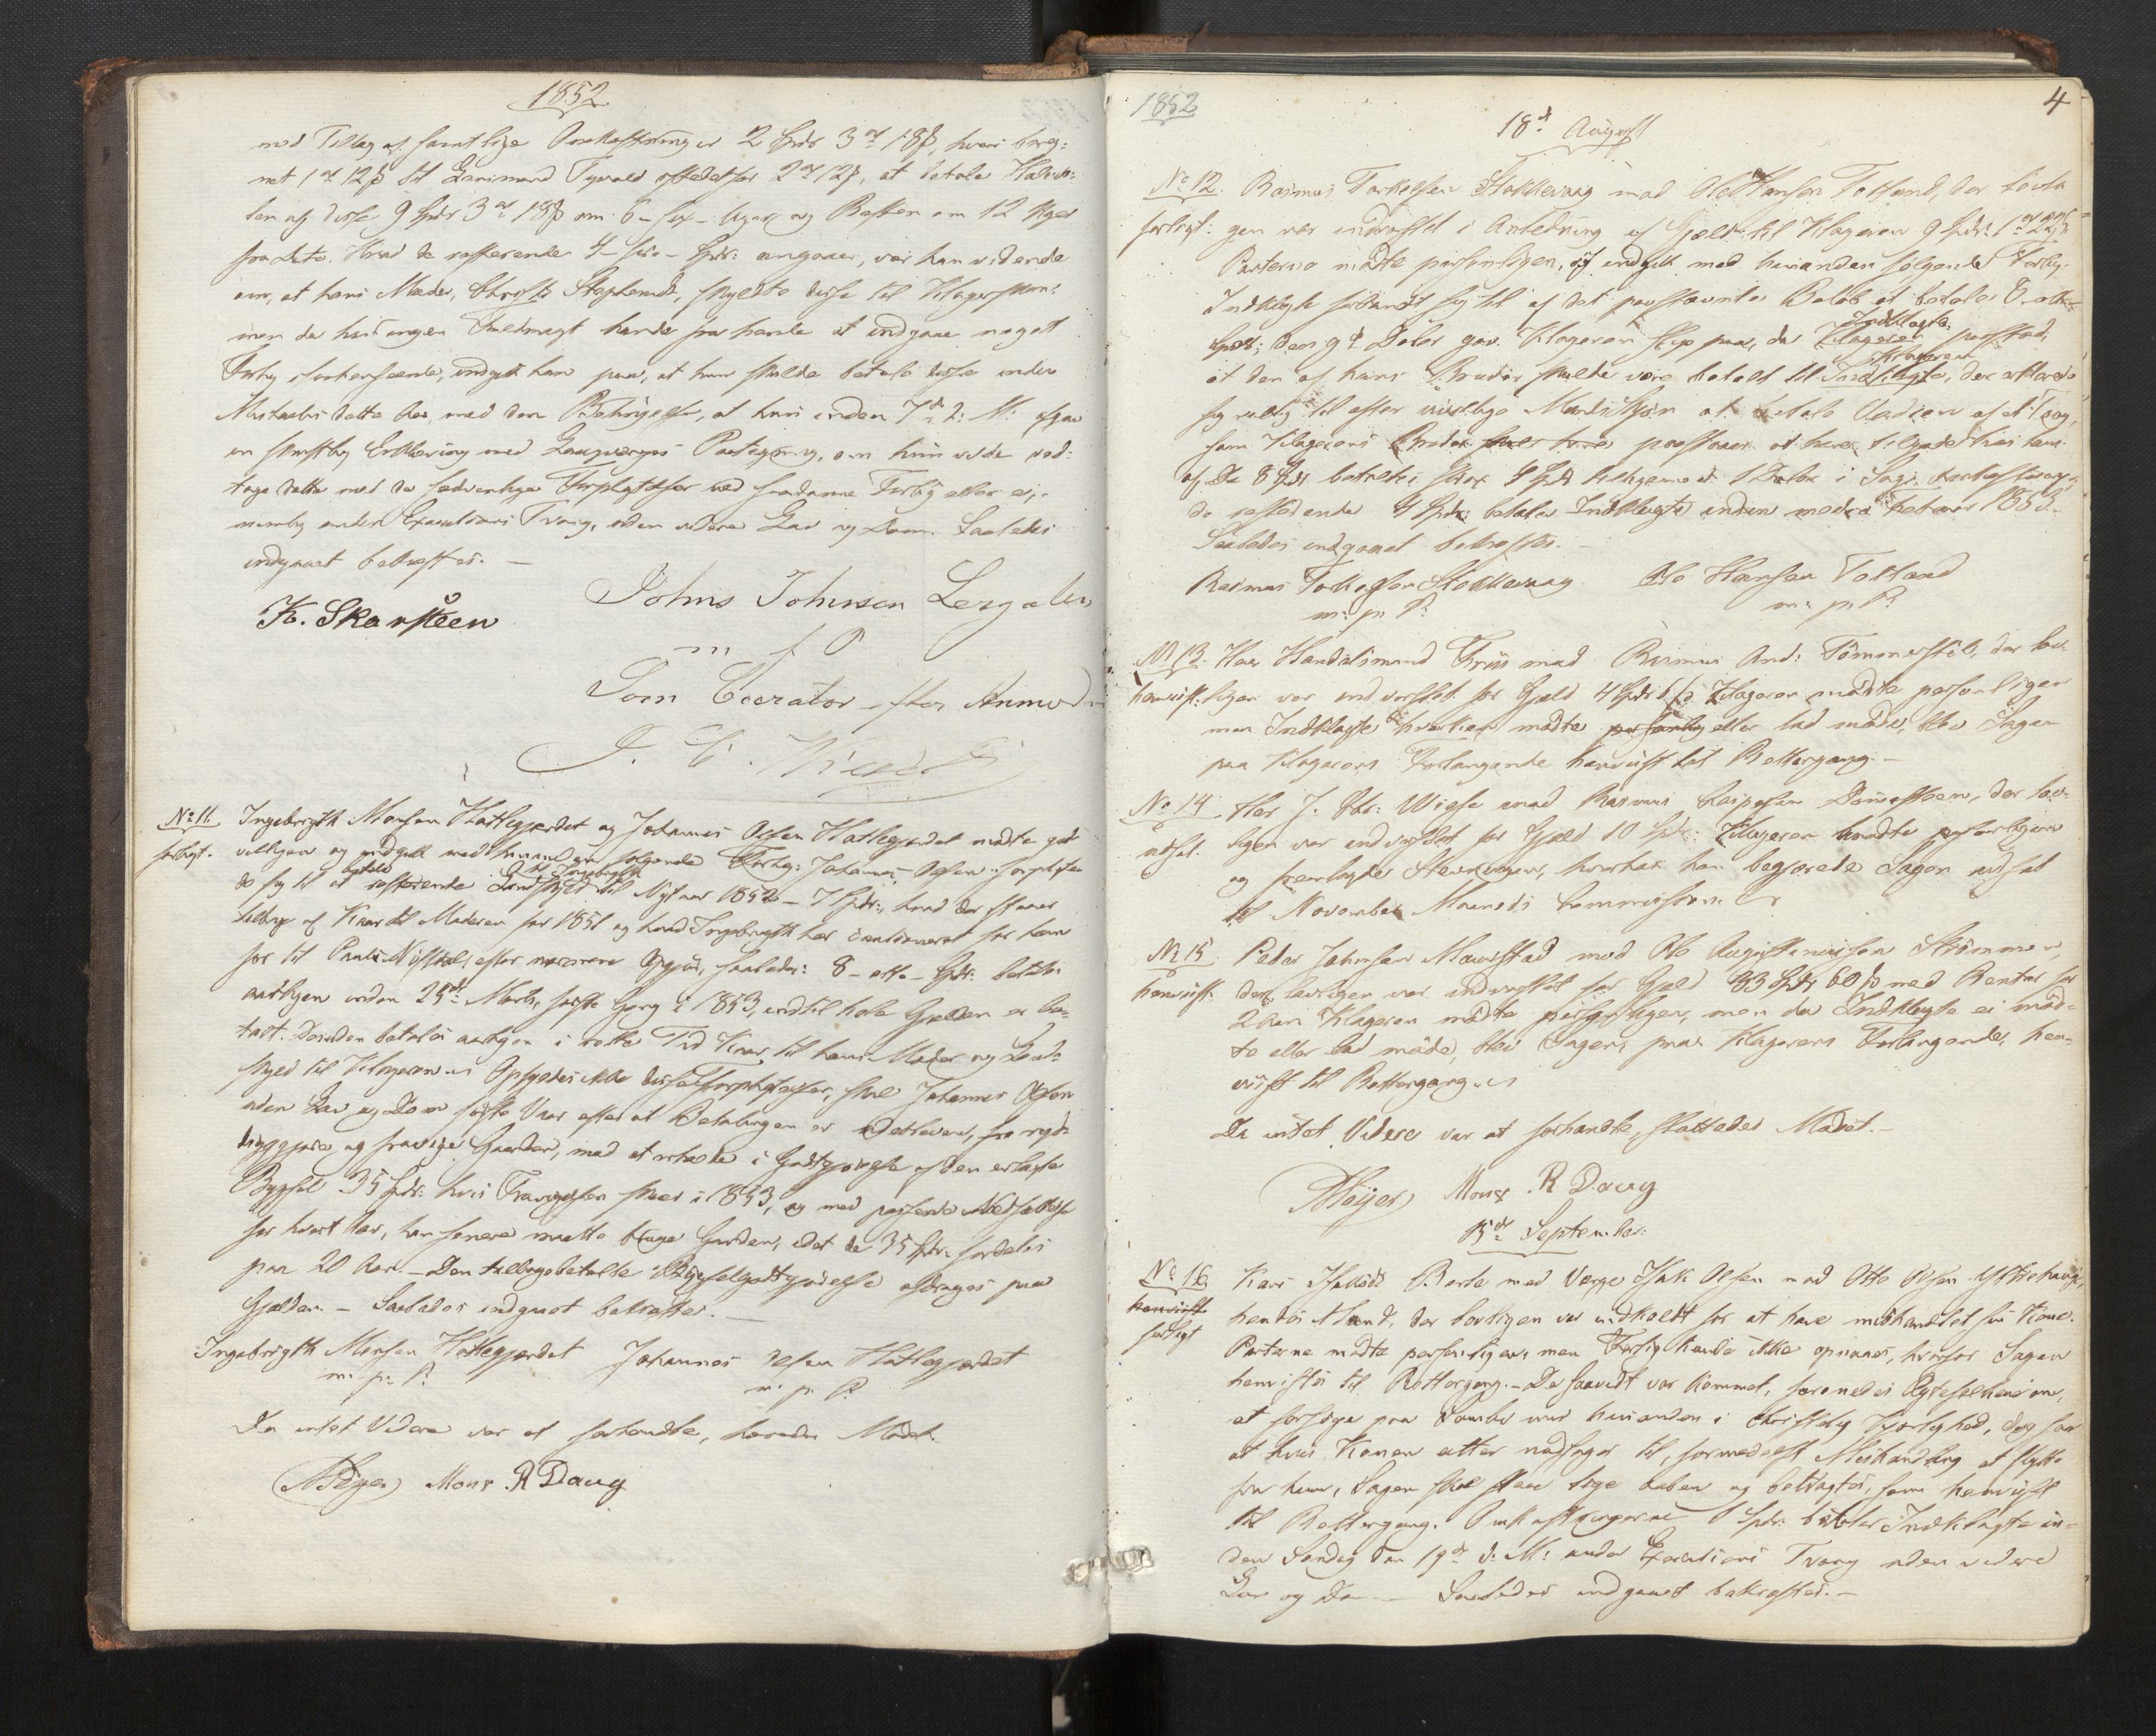 1852
med Tillæg af samtlige Omkostninger 2 Spdr 3 ort 18 ß, hvori bereg-
net 1 ort 12 ß til Leensmand istedetfor 2 ort 12 ß, at betale Halvde-
len af disse 9 Spdr 3 ort 18 ß om 6 - sex - Uger og Resten om 12 Uger
fra Dato. Hvad de resterende 4 - fire - Spdr: angaaer, var han vidende
om, at hans Moder, skyldte disse til Klagerskens
men da han ingen Fuldmagt havde fra hende at indgaae noget
Forlig i saa henseende, indgik han paa, at hun skulde betale disse inden
dette Aar, med den Betingelse, at hun inden 7de d: M: afgav
en skriftlig Erklæring med Laugværges Paategning, om hun vilde ved-
tage dette med de sædvanlige Forpligtelser ved saadanne Forlig eller ei,
nemlig under Executions Tvang, uden videre Lov og Dom. Saaledes
indgaaet bekræftes. —
K. Skarsteen
Johns Johnsen
m f P
Som Curator efter Anmod
No 11.
forligt.
Ingebrigth Monsen Hatlegjærdet og Johannes Olsen Hatlegjærdet mødte god-
villigen og indgik med hinanden følgende Forlig: Johannes Olsen forpligte-
de sig til at betale resterende Landskyld til Ingebrigth til Nytaar 1852 - 7 Spdr:, hvad der staaer
tilbage af Kaar til Moderen for 1851 og hvad Ingebrigth har cautioneret for ham
for til efter nærmere Opgjør, saaledes: 8 - otte - Spdr. betales
aarligen inden 25de Marts, første Gang i 1853, indtil hele Gjælden er be-
talt. Desuden betales aarligen i rette Tid Kaar til hans Moder og Land-
skyld til Klageren. Opfyldes ikke disse Forpligtelser, skal Johannes Olsen
uden Lov og Dom første Vaar efter at Betalingen er udebleven, fra ryd-
diggjøre og fravige Gaarden, med at erholde i Godtgjørelse af den erlagte
Bygsel 35 Spdr: hvis Fravigelsen skeer i 1853, og med passende Nedsættelse
for hvert Aar, han senere maatte bruge Gaarden, idet de 35 Spdr: fordeles
paa 20 Aar. — Den tilbagebetalte Bygselgodtgjørelse afdrages paa
Gjælden. — Saaledes indgaaet bekræftes. —
Ingebrigth Monsen Hatlegjerdet Johannes Olsen Hatlegjerdet
m: p: P: m: p: P:
Da intet Videre var at forhandle, hævedes Mødet.
Mons R Daug
1852
4
18de August
No 12.
forligt:
Rasmus Torkelsen Stokkevaag mod Ole Hansen Totland, der lovli-
gen var indkaldt i Anledning af Gjæld til Klageren 9 Spdr: 1 ort 22 ß
Parterne mødte personligen, og indgik med hinanden følgende Forlig:
Indklagte forbandt sig til af det paastævnte Beløb at betale 8 - otte -
Spdr; den 9de Daler gav Klageren Slip paa, da Klageren Indklagte paastod,
at den af hans Broder skulde være betalt til Indklagte Klageren, der erklærede
sig villig til efter uvillige Mænds Skjøn at betale Værdien af et Slag,
som Klagerens Broder paastaaer at have tilgode hos ham
af De 8 Spdr betales strax 4 Spdr tilligemed 1 Daler i Sags Omkostninger,
de resterende 4 Spdr: betaler Indklagte inden medio Februar 1853.
Saaledes indgaaet bekræftes. —
Rasmus Torkelsen Stokkevaag Ole Hansen Totland
m: p: P: m: p: P:
No 13.
henviist:
Herr Handelsmand Friis mod Rasmus And: Tømmerstøl, der lov-
ligen var indkaldt for Gjæld 4 Spdr. Klageren mødte personligen
men Indklagte hverken mødte personlig eller lod møde, blev Sagen
paa Klagerens Forlangende henviist til Rettergang. —
No 14
udsat.
Herr J. Chr: Wiese mod Rasmus der lov-
ligen var indkaldt for Gjæld 10 Spdr: Klageren mødte personligen
og fremlagde Stevningen, hvorhos han begjærede Sagen udsat
til November Maaneds Commission.
No 15
henviist:
Peder Johnsen Maurstad mod Ole Strømmen,
der lovligen var indkaldt for Gjæld 33 Spdr 60 ß med Renter for
2 Aar. Klageren mødte personligen, men da Indklagte ei mød-
te eller lod møde, blev Sagen, paa Klagerens Forlangende, hen-
viist til Rettergang.
Da intet Videre var at forhandle, sluttedes Mødet. —
Mons R Daug
15de September:
No 16.
henviist
forligt
Kari Berte med Værge Isak Olsen mod Otto Olsen
hendes Mand, der lovligen var indkaldt for at have mishandlet sin Kone.
Parterne mødte personligen, men Forlig kunde ikke opnaaes, hvorfor Sagen
henvistes til Rettergang. — Da saavidt var kommet, forenedes Ægtefolkene om,
at forsøge paa Samliv med hinanden i christelig Kjærlighed, dog saa
at hvis Konen atter nødsages til, formedelst Mishandling at flytte
fra ham, Sagen skal staae lige aaben og betragtes, som henviist
til Rettergang. Omkostningerne 1 Spdr. betaler Indklagte in-
den Søndag den 19de d: M: under Executions Tvang uden videre
Lov og Dom — Saaledes indgaaet bekræftes. —